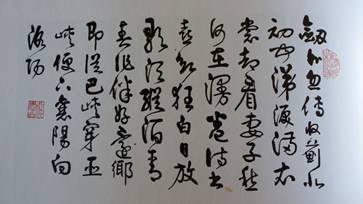 劍外忽傳收薊北
初聞涕淚滿衣
裳却看妻子愁
何在漫卷詩書
喜欲狂白日放
歌須縱酒青
春作伴好還鄉
即從巴峽穿巫
峽便下襄陽向
洛陽